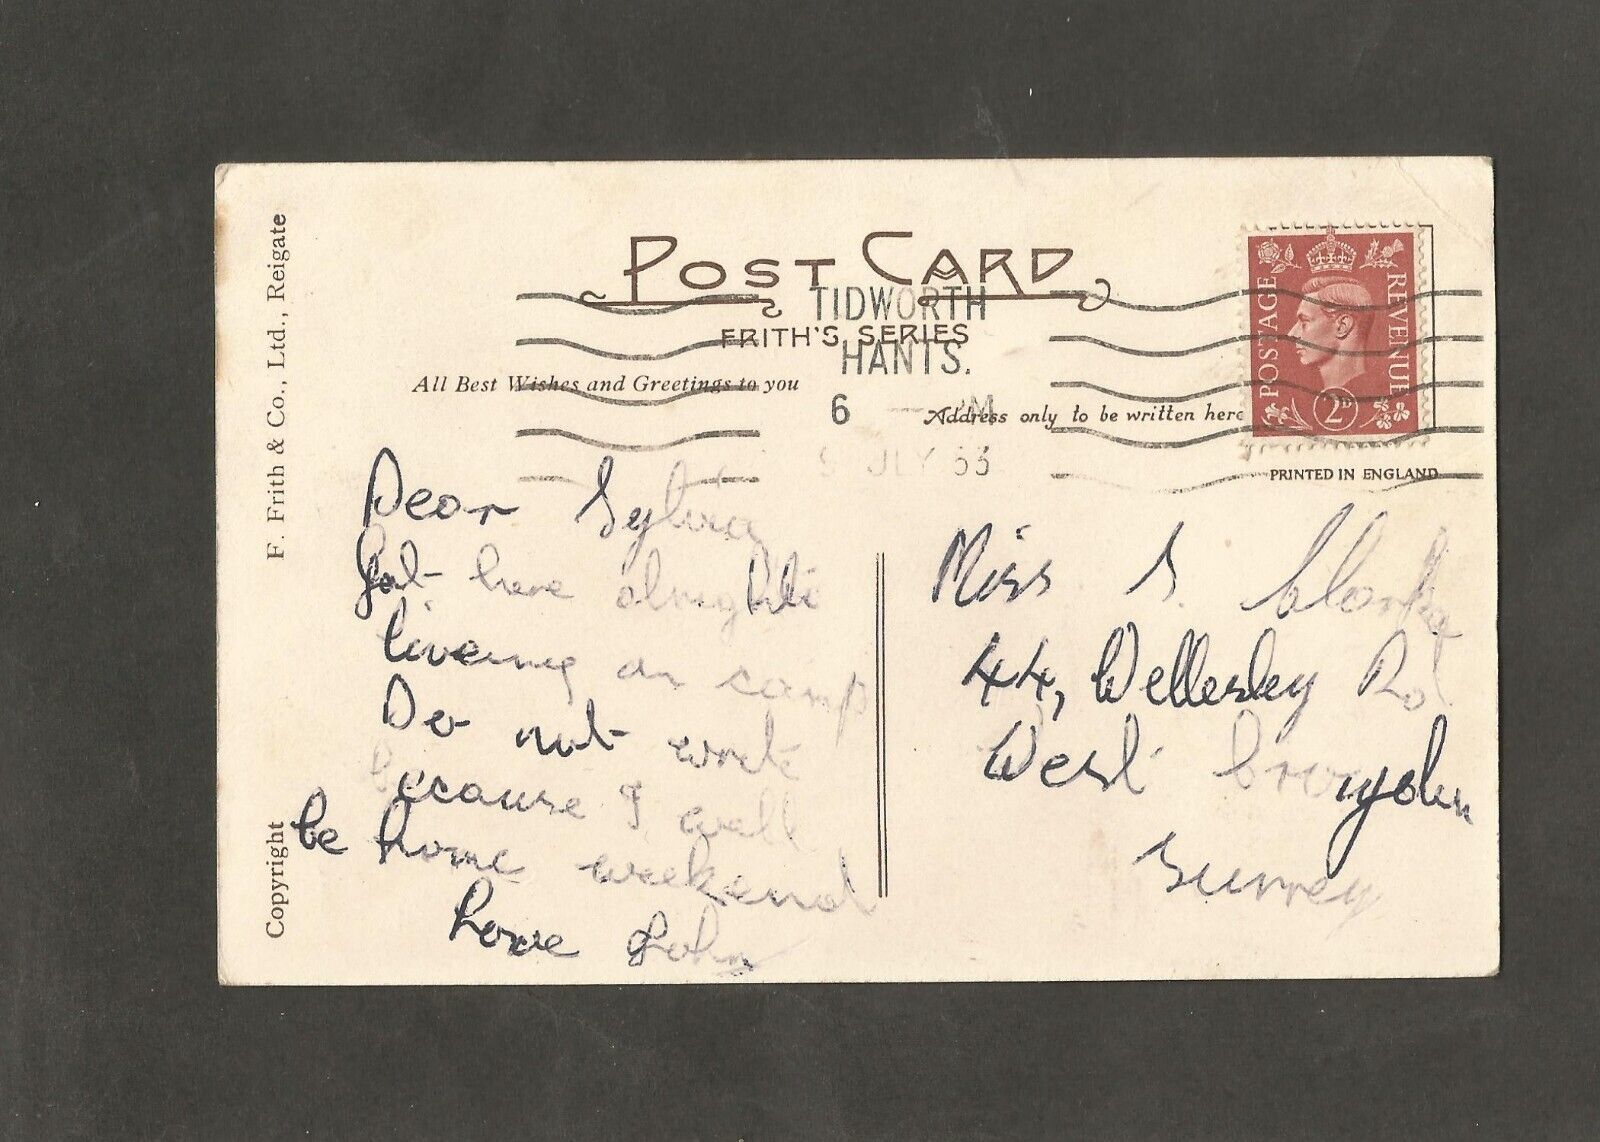 F. Frith & Co., Ltd., Reigate
Copyright
POST CARD
FRITH'S SERIES
TIDWORTH
HANTS.
6 — PM
JLY 53
All Best Wishes and Greetings to you
Address only to be written here
POSTAGE
REVENUE
2D
PRINTED IN ENGLAND
Dear Sylvia
Got here alright
livering in camp
Do not write
because I will
be home weekend
Love John
Miss S. Clarke
44, Wellesley Rd
West Croydon
Surrey